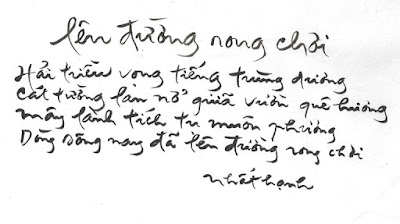 lên đường rong chơi
Hải triều vọng tiếng trùng dương
Cát tường lạn nở giữa vườn quê hương
mây lành tích tụ muôn phương
Dòng sông nay đã lên đường rong chơi
Nhất hạnh